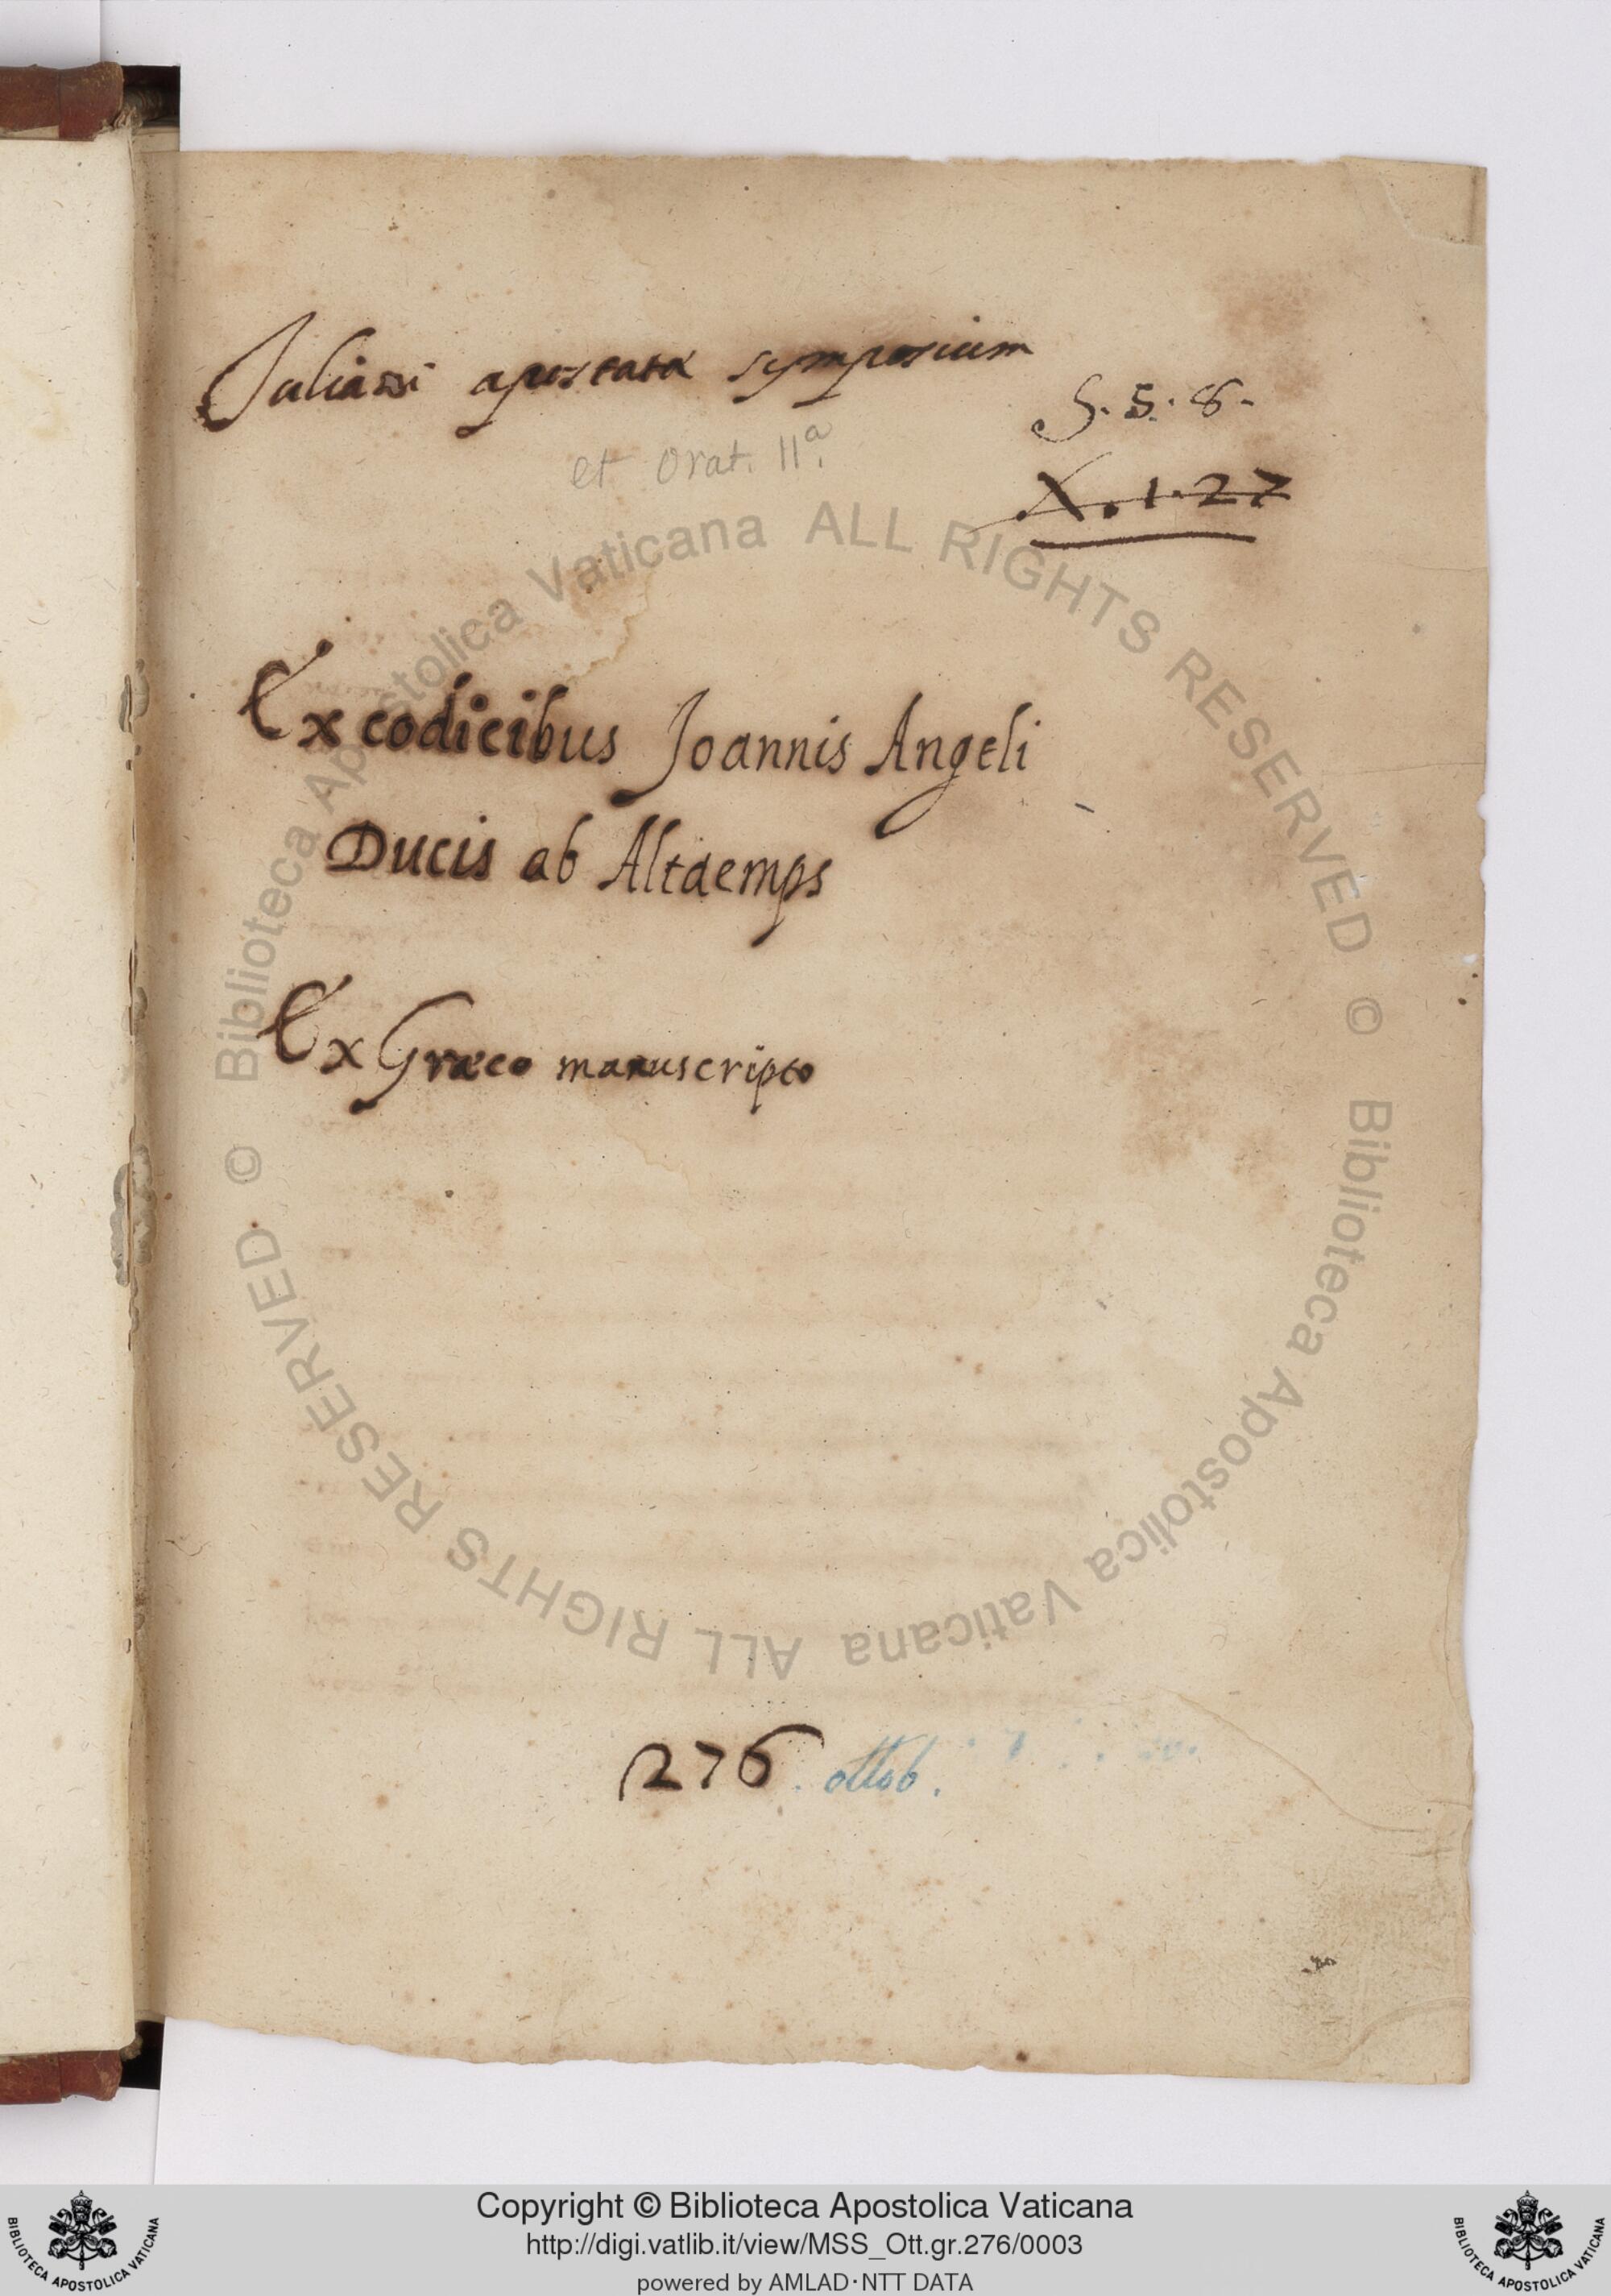 Juliani apostatæ symposium
S. 5. 8.
et Orat. IIª.
X. 1. 27
Ex codicibus Joannis Angeli
Ducis ab Altaemps
Ex Græco manuscripto
276. ottob.
© Biblioteca Apostolica Vaticana ALL RIGHTS RESERVED © Biblioteca Apostolica Vaticana ALL RIGHTS RESERVED
Copyright © Biblioteca Apostolica Vaticana
http://digi.vatlib.it/view/MSS_Ott.gr.276/0003
powered by AMLAD·NTT DATA
BIBLIOTECA APOSTOLICA VATICANA
BIBLIOTECA APOSTOLICA VATICANA